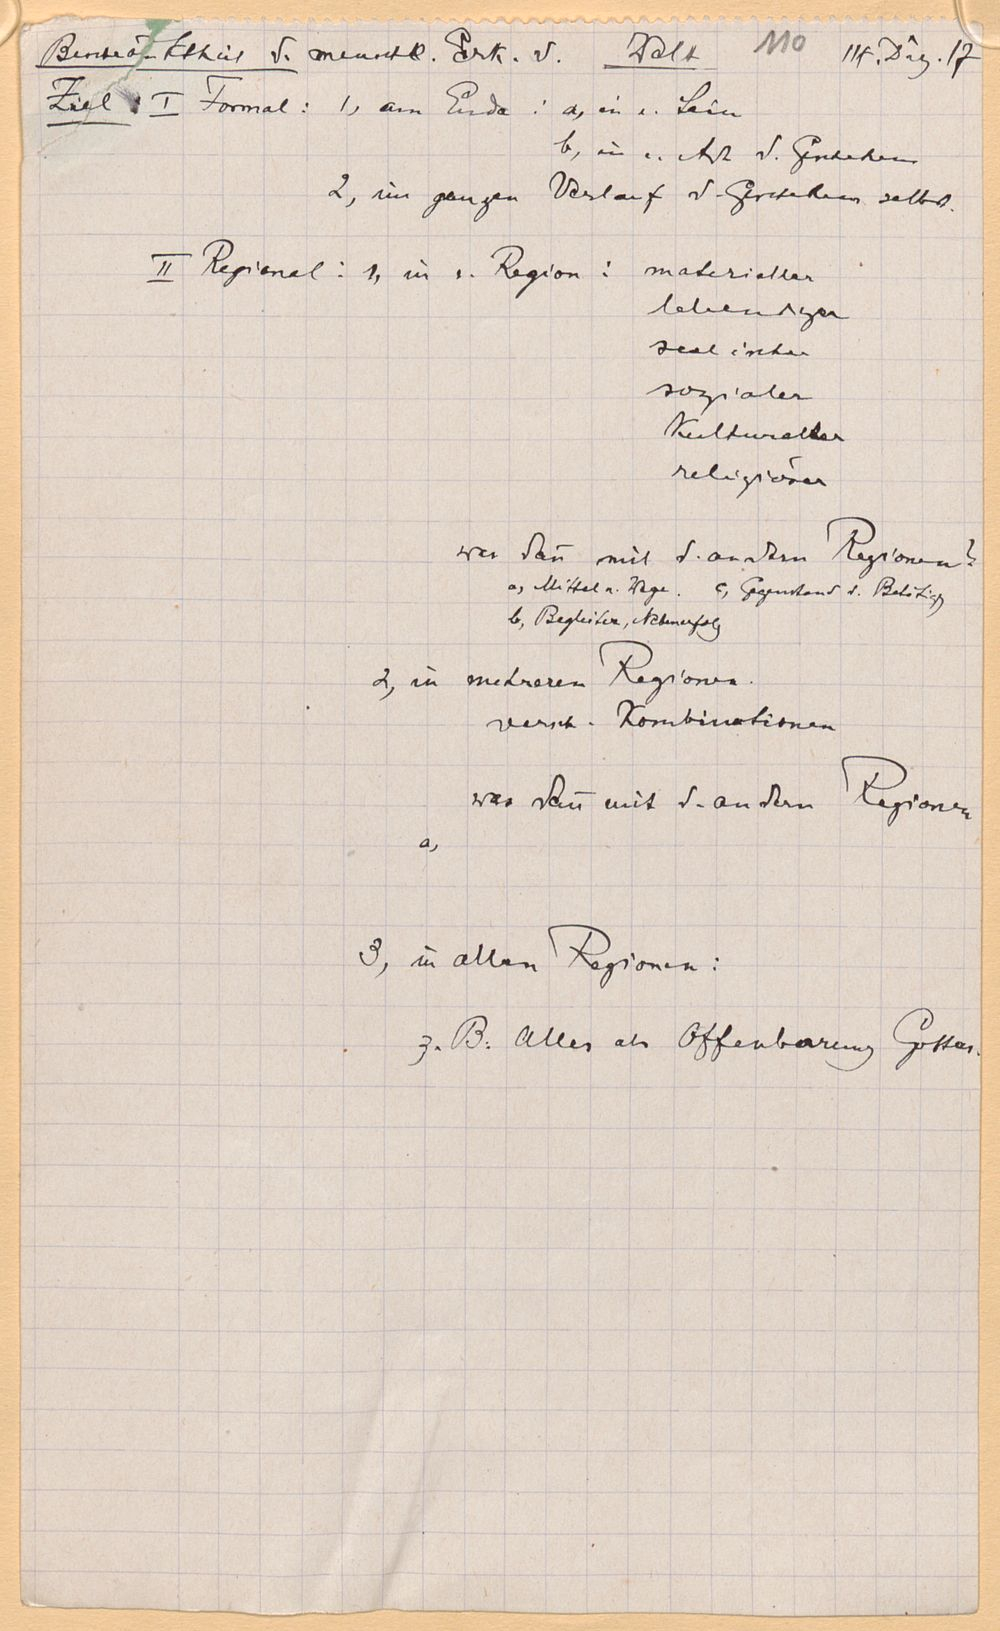 Beschränktheit d. menschl. Erk. d. Welt 110 14. Dez. 17
Ziel: I Formal: 1, am Ende: a, in e. Sein
b, in e. Art d. Geschehens
2, im ganzen Verlauf d. Geschehens selbst.
II Regional: 1, in e. Region: materieller
lebendiger
seelischer
sozialer
Kultureller
religiöser
was dañ mit d. andern Regionen?
a, Mittel u. Wege. c, Gegenstand d. Betätigg
b, Begleiter, Nebenerfolg
2, in mehreren Regionen.
versch. Kombinationen
was dañ mit d. andern Regionen
a,
3, in allen Regionen:
z. B. Alles als Offenbarung Gottes.